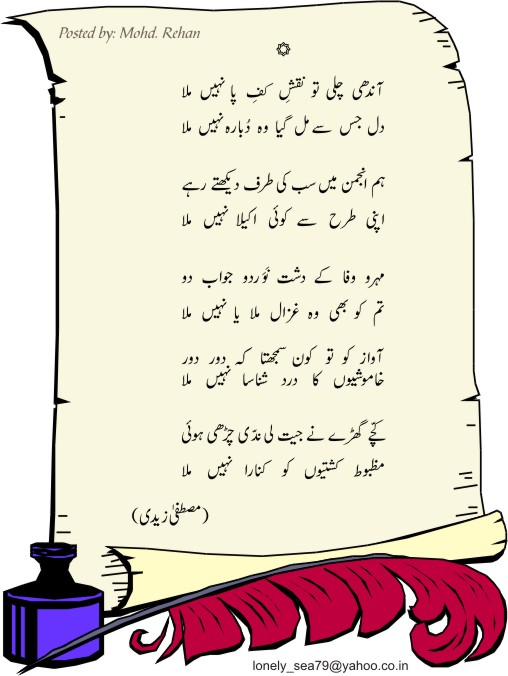 Posted by: Mohd. Rehan
آندھی چلی تو نقشِ کفِ پا نہیں ملا
دل جس سے مل گیا وہ دُبارہ نہیں ملا
ہم انجمن میں سب کی طرف دیکھتے رہے
اپنی طرح سے کوئی اکیلا نہیں ملا
مہرو وفا کے دشت نَوَردو جواب دو
تم کو بھی وہ غزال ملا یا نہیں ملا
آواز کو تو کون سمجھتا کہ دور دور
خاموشیوں کا درد شناسا نہیں ملا
کچّے گھڑے نے جیت لی ندّی چڑھی ہوئی
مظبوط کشتیوں کو کنارا نہیں ملا
(مصطفیٰ زیدی)
lonely_sea79@yahoo.co.in